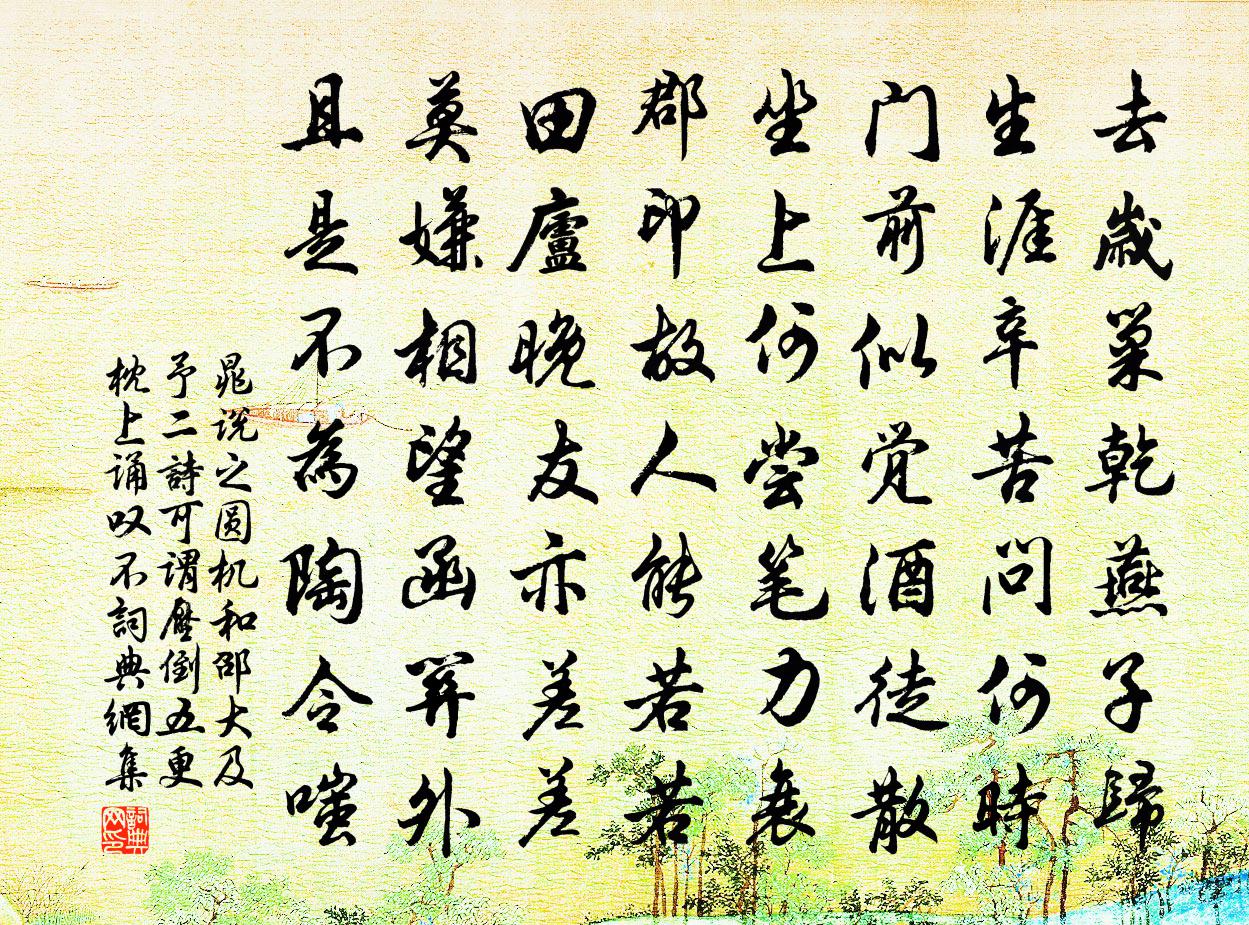 去歲巢乾燕子歸
生涯辛苦问何時
门前似觉酒徒散
坐上何尝笔力衰
郡印故人能若若
田廬晚友亦差差
莫嫌相望函關外
且是不為陶令嗤
晁说之圆机和邵大及
予二詩可謂壓倒五更
枕上诵叹不詞典網集
詞典网印